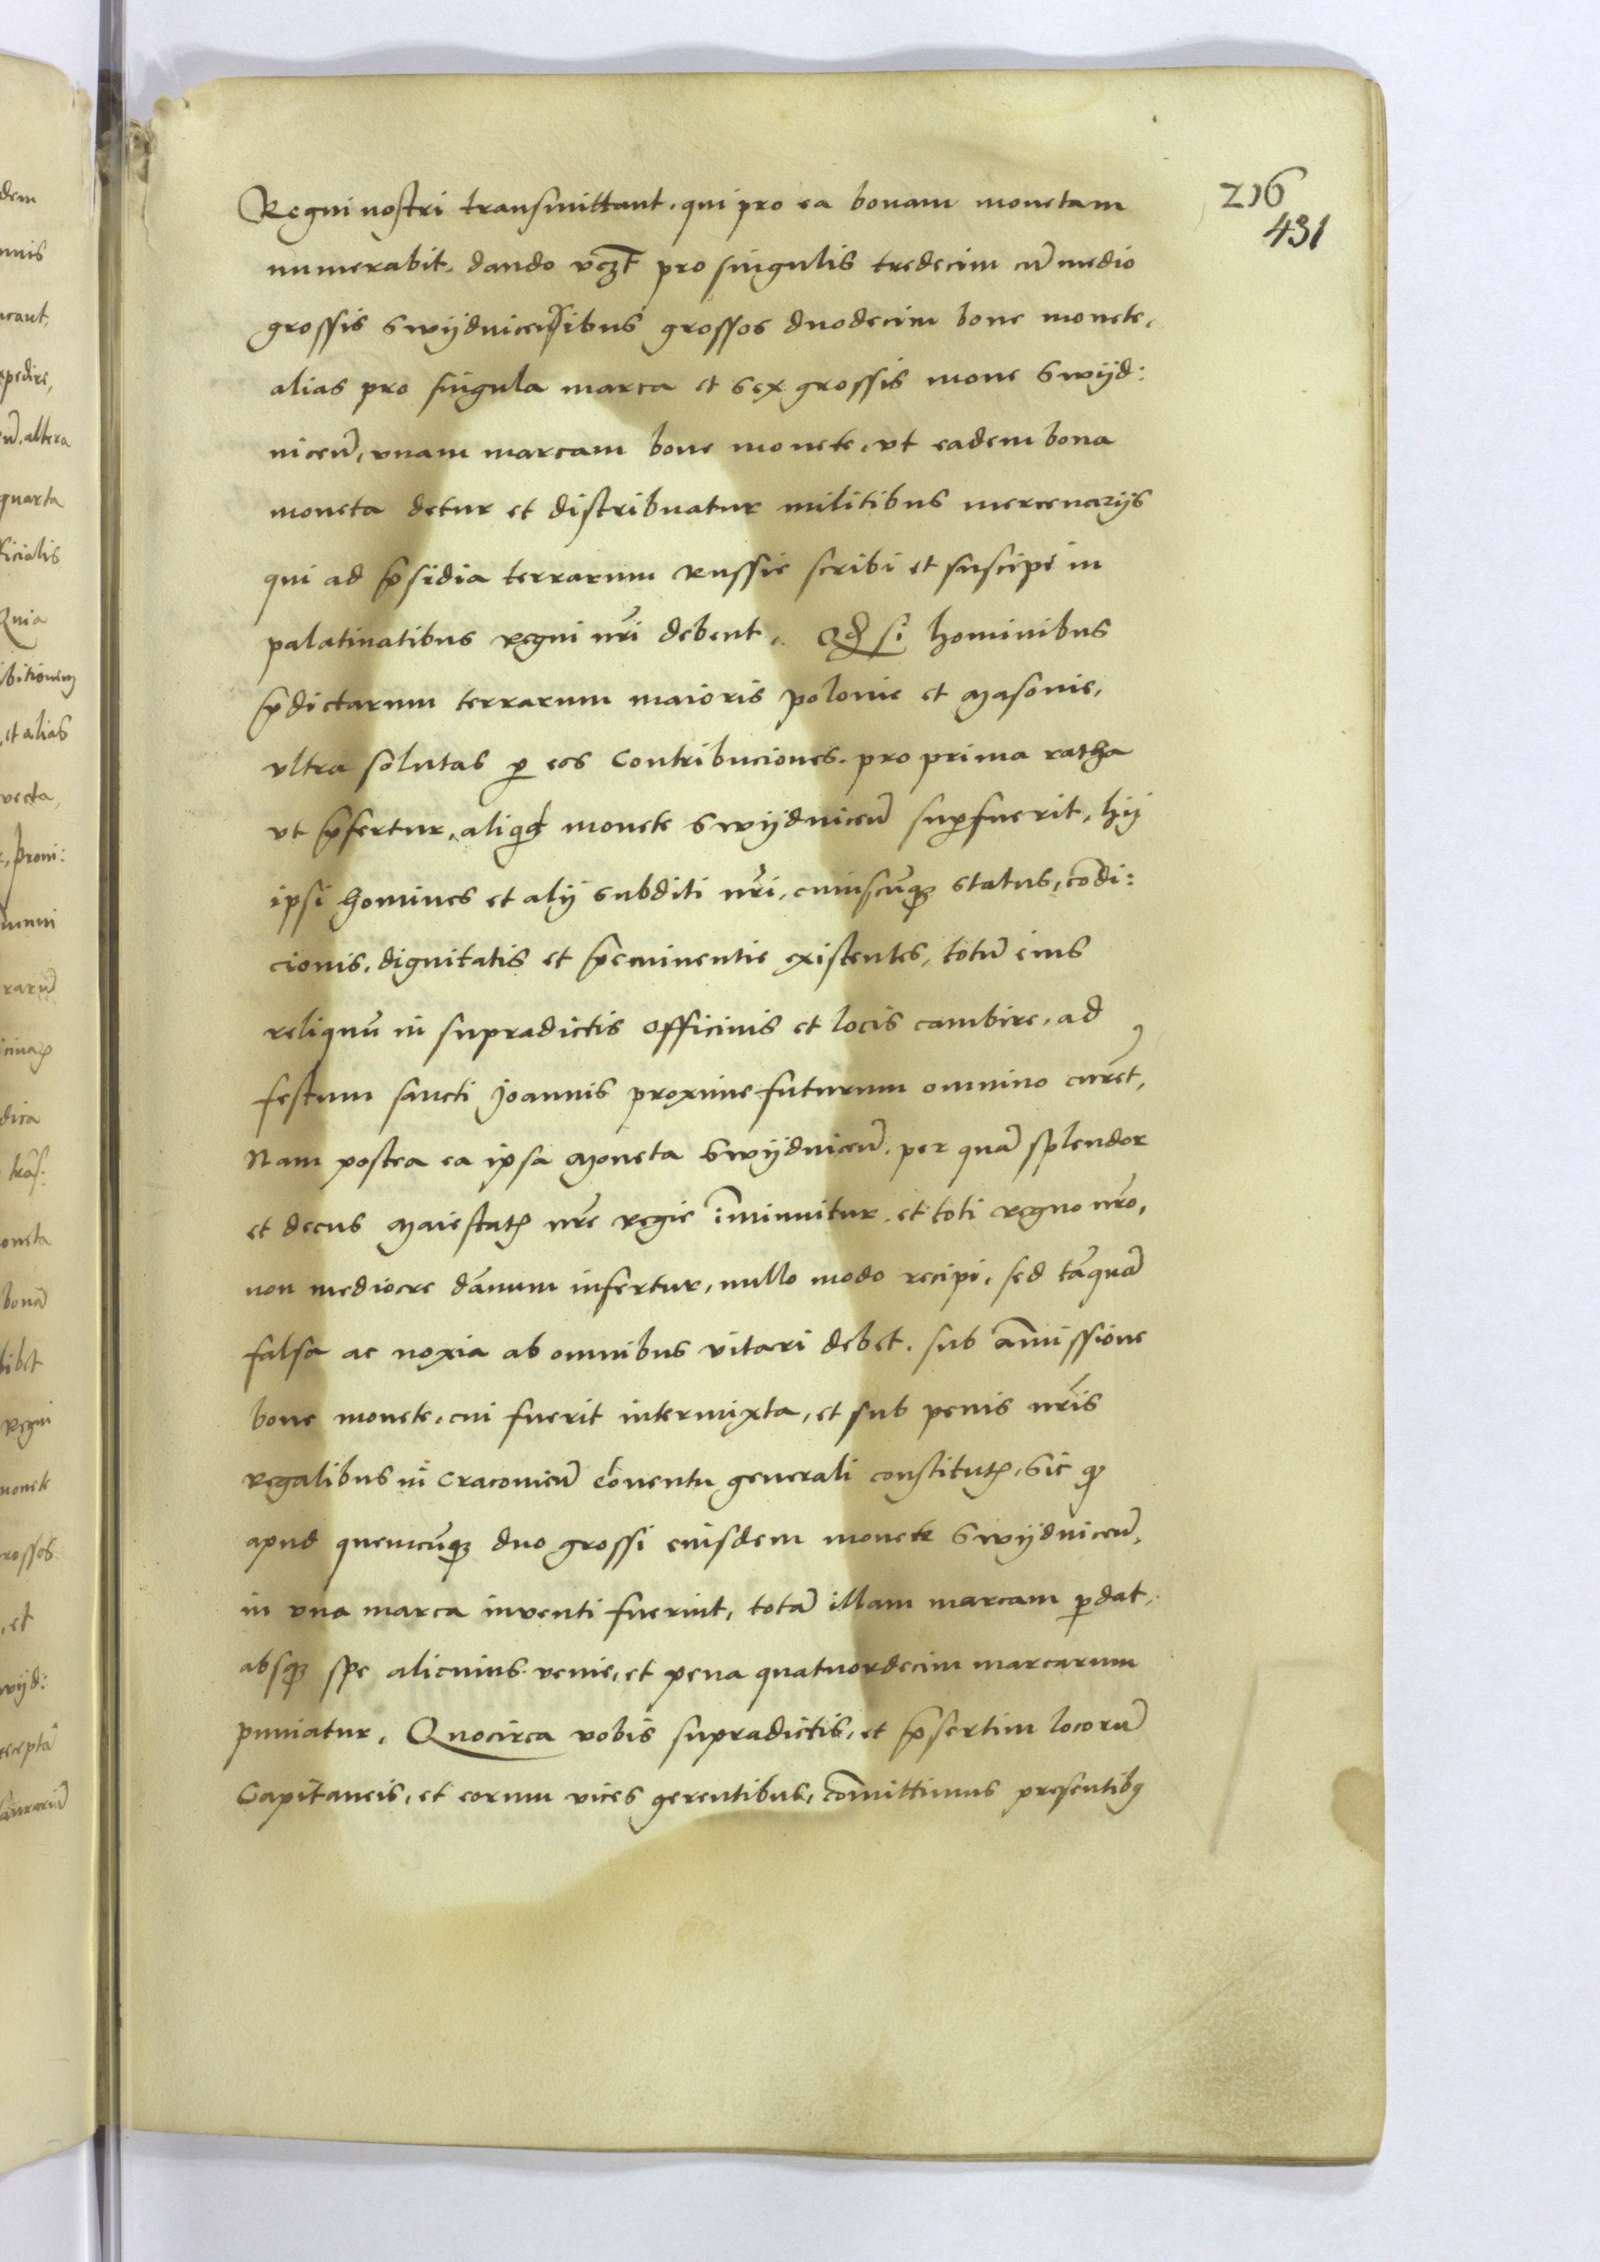 216
431
Regni nostri transmittant. qui pro ea bonam monetam
numerabit. dando vczt pro singulis tredecim cū medio
grossis Swydnicensibus grossos duodecim bone monete,
alias pro singula marca et sex grossis mone Swyd:
niceñ, vnam marcam bone monete, vt eadem bona
moneta detur et distribuatur militibus mercenarijs
qui ad p̄sidia terrarum Russie scribi et suscipi in
palatinatibus regni nr̄i debent. Qd si hominibus
p̄dictarum terrarum maioris polonie et Masovie,
vltra solutas ꝑ eos Contribuciones. pro prima ratha
vt p̄fertur, aliqd monete Swydniceñ suꝑfuerit, hij
ipsi homines et alij subditi nr̄i, cuiuscūqꝫ status, cōdi:
cionis, dignitatis et p̄eminentie existentes, totū eius
reliquū in supradictis officinis et locis cambire, ad
festum sancti Joannis proxime futurum omnino curēt,
Nam postea ea ipsa Moneta Swydniceñ. per quā splendor
et decus Maiestatꝭ nr̄e regie īminuitur. et toti regno nr̄o,
non mediocre dānum infertur, nullo modo recipi, sed tāquā
falsa ac noxia ab omnibus vitari debet. sub āmissione
bone monete, cui fuerit intermixta, et sub penis nr̄is
regalibus in Cracovieñ Cōventu generali constitutꝭ, Sic qꝫ
apud quemcūqꝫ duo grossi eiusdem monete Swydniceñ,
in vna marca inventi fuerint, totā illam marcam ꝑdat,
absqꝫ spe alicuius venie, et pena quatuordecim marcarum
puniatur. Quocirca vobis supradictis, et p̄sertim locorū
Capitaneis, et eorum vices gerentibus, cōmittimus presentibꝫ